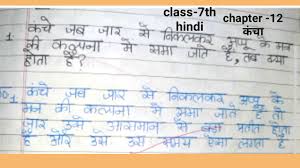 class-7th
hindi
chapter -12
कंचा
1. कंचे जब जार से निकलकर अप्पू के मन
की कल्पना में समा जाते हैं, तब क्या
होता है?
कंचे जब जार से निकलकर अप्पू के
मन की कल्पना में समा जाते हैं तो
जार उसे आसमान से बड़ा प्रतीत होता
है और उसे उस समय ऐसा लगता है